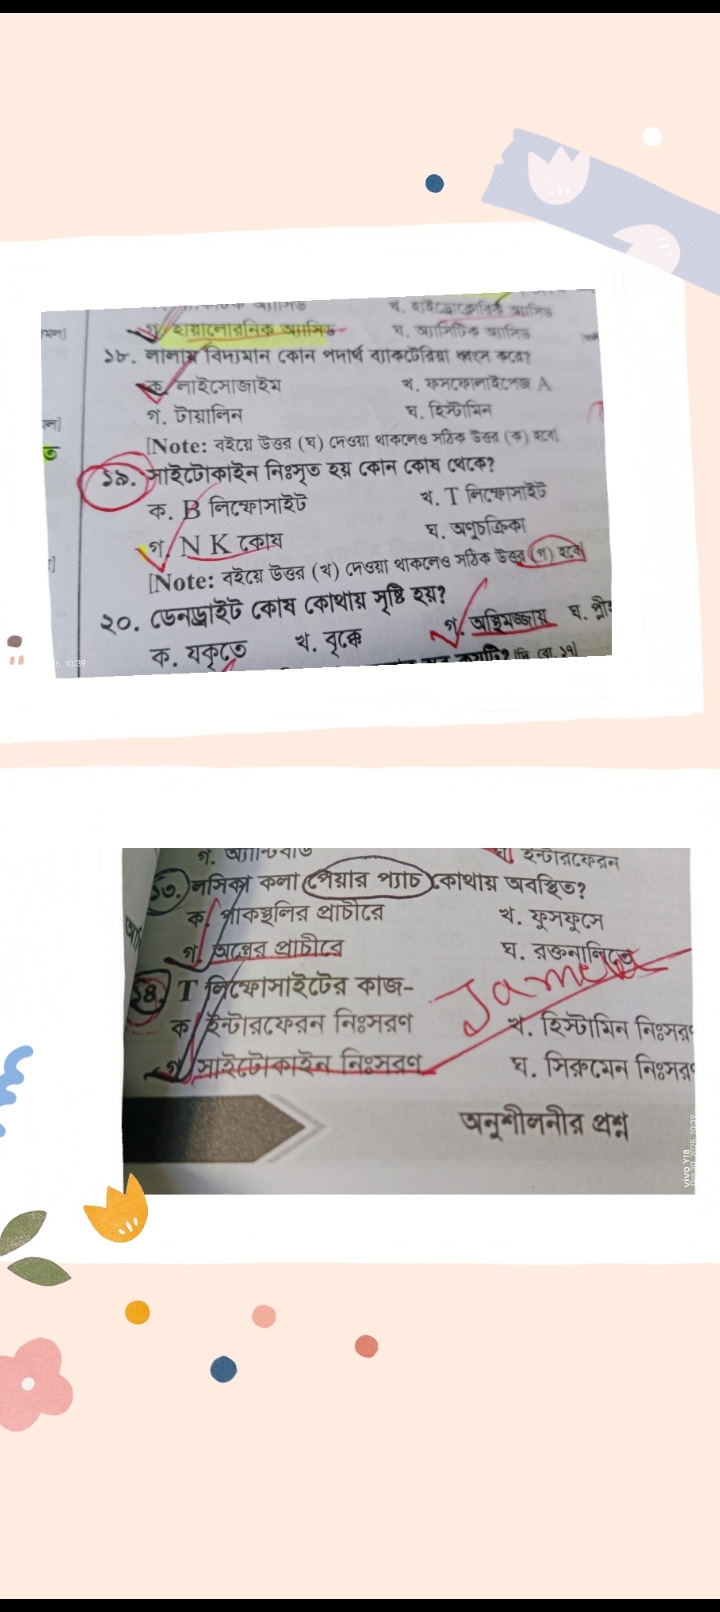 খ. হাইড্রোক্লোরিক অ্যাসিড
গ. হায়ালোরনিক অ্যাসিড
ঘ. অ্যাসিটিক অ্যাসিড
১৮. লালায় বিদ্যমান কোন পদার্থ ব্যাকটেরিয়া ধ্বংস করে?
ক. লাইসোজাইম
খ. ফসফোলাইপেজ A
গ. টায়ালিন
ঘ. হিস্টামিন
[Note: বইয়ে উত্তর (ঘ) দেওয়া থাকলেও সঠিক উত্তর (ক) হবে]
১৯. সাইটোকাইন নিঃসৃত হয় কোন কোষ থেকে?
ক. B লিম্ফোসাইট
খ. T লিম্ফোসাইট
গ. N K কোষ
ঘ. অণুচক্রিকা
[Note: বইয়ে উত্তর (খ) দেওয়া থাকলেও সঠিক উত্তর (গ) হবে]
২০. ডেনড্রাইট কোষ কোথায় সৃষ্টি হয়?
ক. যকৃতে
খ. বৃক্কে
গ. অস্থিমজ্জায়
ঘ. প্লী
গ. অ্যান্টিবডি
ঘ. ইন্টারফেরন
১৩. লসিকা কলা পেয়ার প্যাচ কোথায় অবস্থিত?
ক. পাকস্থলির প্রাচীরে
খ. ফুসফুসে
গ. অন্ত্রের প্রাচীরে
ঘ. রক্তনালিতে
১৪. T লিম্ফোসাইটের কাজ-
ক. ইন্টারফেরন নিঃসরণ
খ. হিস্টামিন নিঃসরণ
গ. সাইটোকাইন নিঃসরণ
ঘ. সিরুমেন নিঃসরণ
অনুশীলনীর প্রশ্ন
vivo Y18